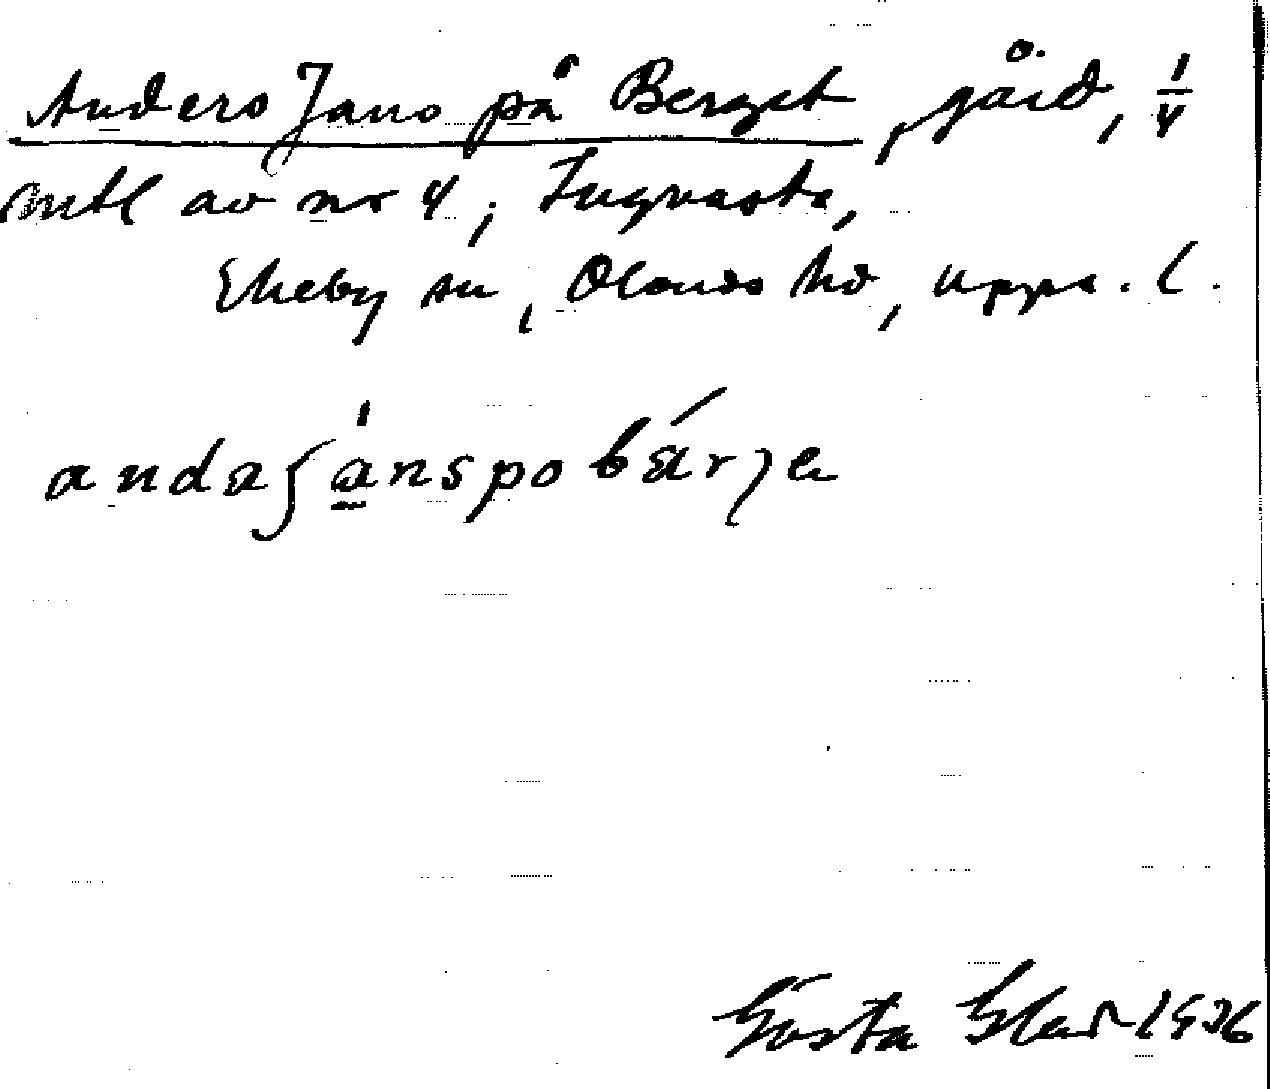 Anders Jans på Berget, gård, 1/4
mtl av nr 4, Ingvasta,
Ekeby sn, Olands hd, Upps. l.
andaʃánspobárje
Gösta 1936